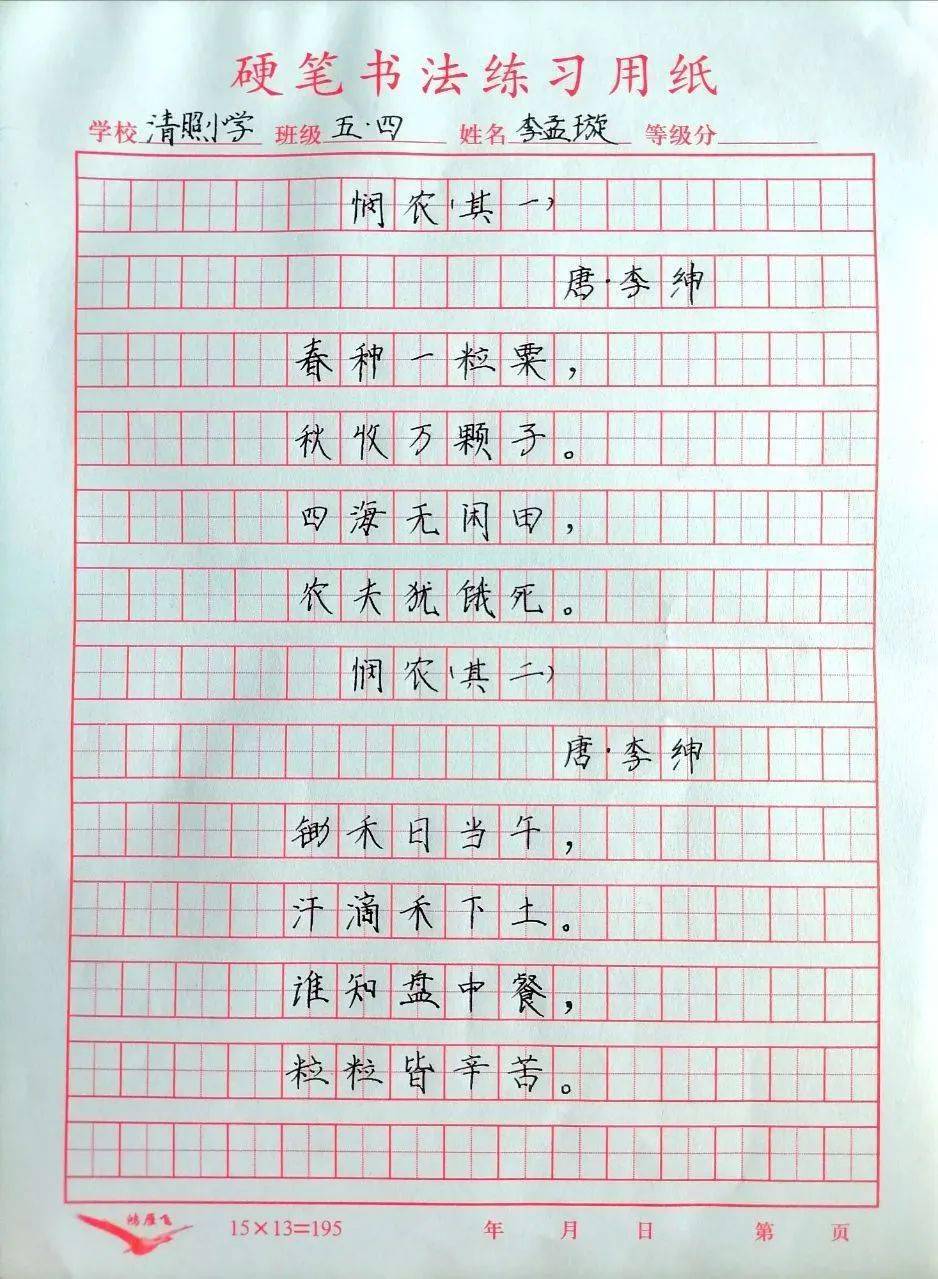 硬笔书法练习用纸
学校 清照小学 班级 五·四 姓名 李孟璇 等级分
悯农(其一)
唐·李绅
春种一粒粟，
秋收万颗子。
四海无闲田，
农夫犹饿死。
悯农(其二)
唐·李绅
锄禾日当午，
汗滴禾下土。
谁知盘中餐，
粒粒皆辛苦。
鸿雁飞 15×13=195 年 月 日 第 页